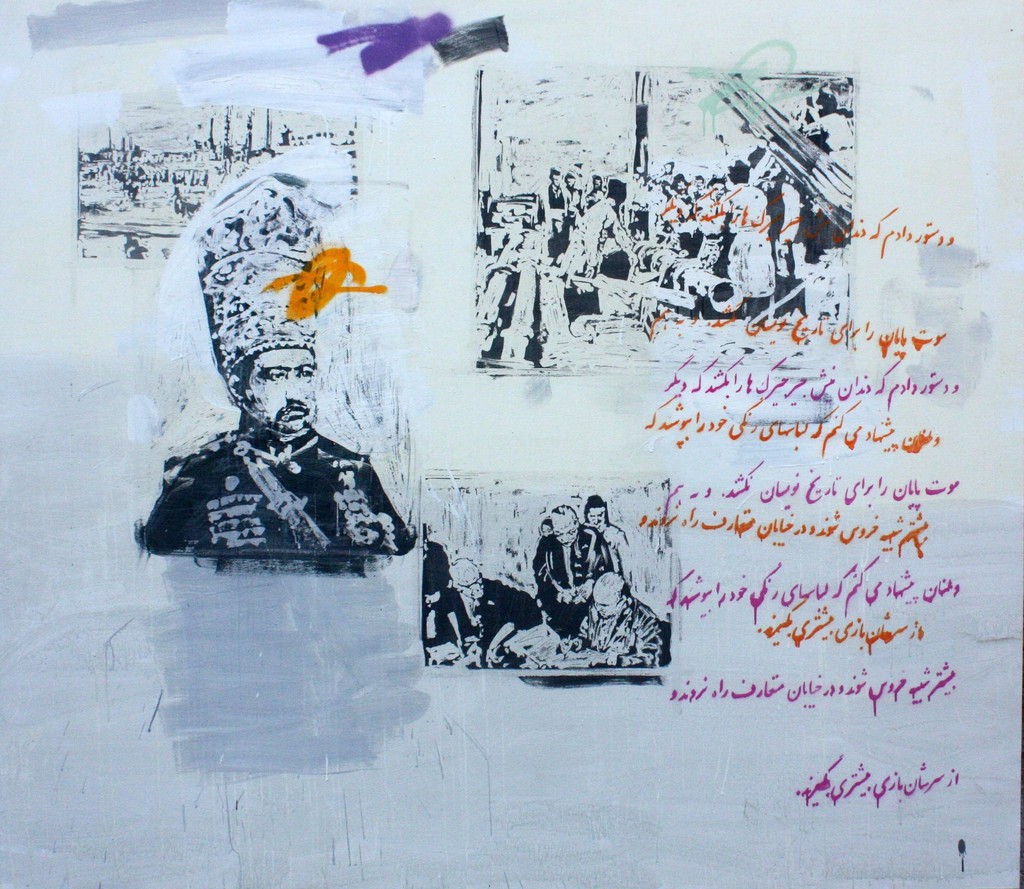 و دستور دادم که دندان نیش جیرجیرک ها را بکشند که دیگر
سوت پایان را برای تاریخ نویسان نکشند. و به هم
و دستور دادم که دندان نیش جیرجیرک ها را بکشند که دیگر
وطنان پیشنهاد می کنم که لباسهای رنگی خود را بپوشند که
سوت پایان را برای تاریخ نویسان نکشند. و به هم
بیشتر شبیه خروس شوند و در خیابان متعارف راه نروند و
وطنان پیشنهاد می کنم که لباسهای رنگی خود را بپوشند که
از سرشان بازی بیشتری بگیرند.
بیشتر شبیه خروس شوند و در خیابان متعارف راه نروند و
از سرشان بازی بیشتری بگیرند.